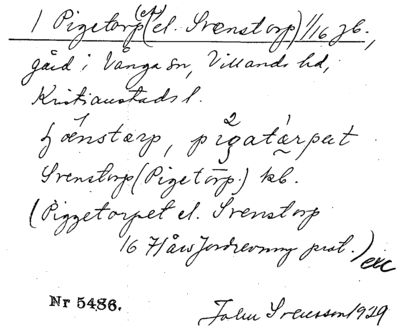 1 Pigetorp(et) (el. Svenstorp) 1/16 jb.,
gård i Vånga sn, Villands hd,
Kristianstads l.
Svenstorp (Pigetorp.) kb.
(Piggetorpet el. Svenstorp
1671 års Jordrevning prot.)
Nr 5486.
John Svensson 1929